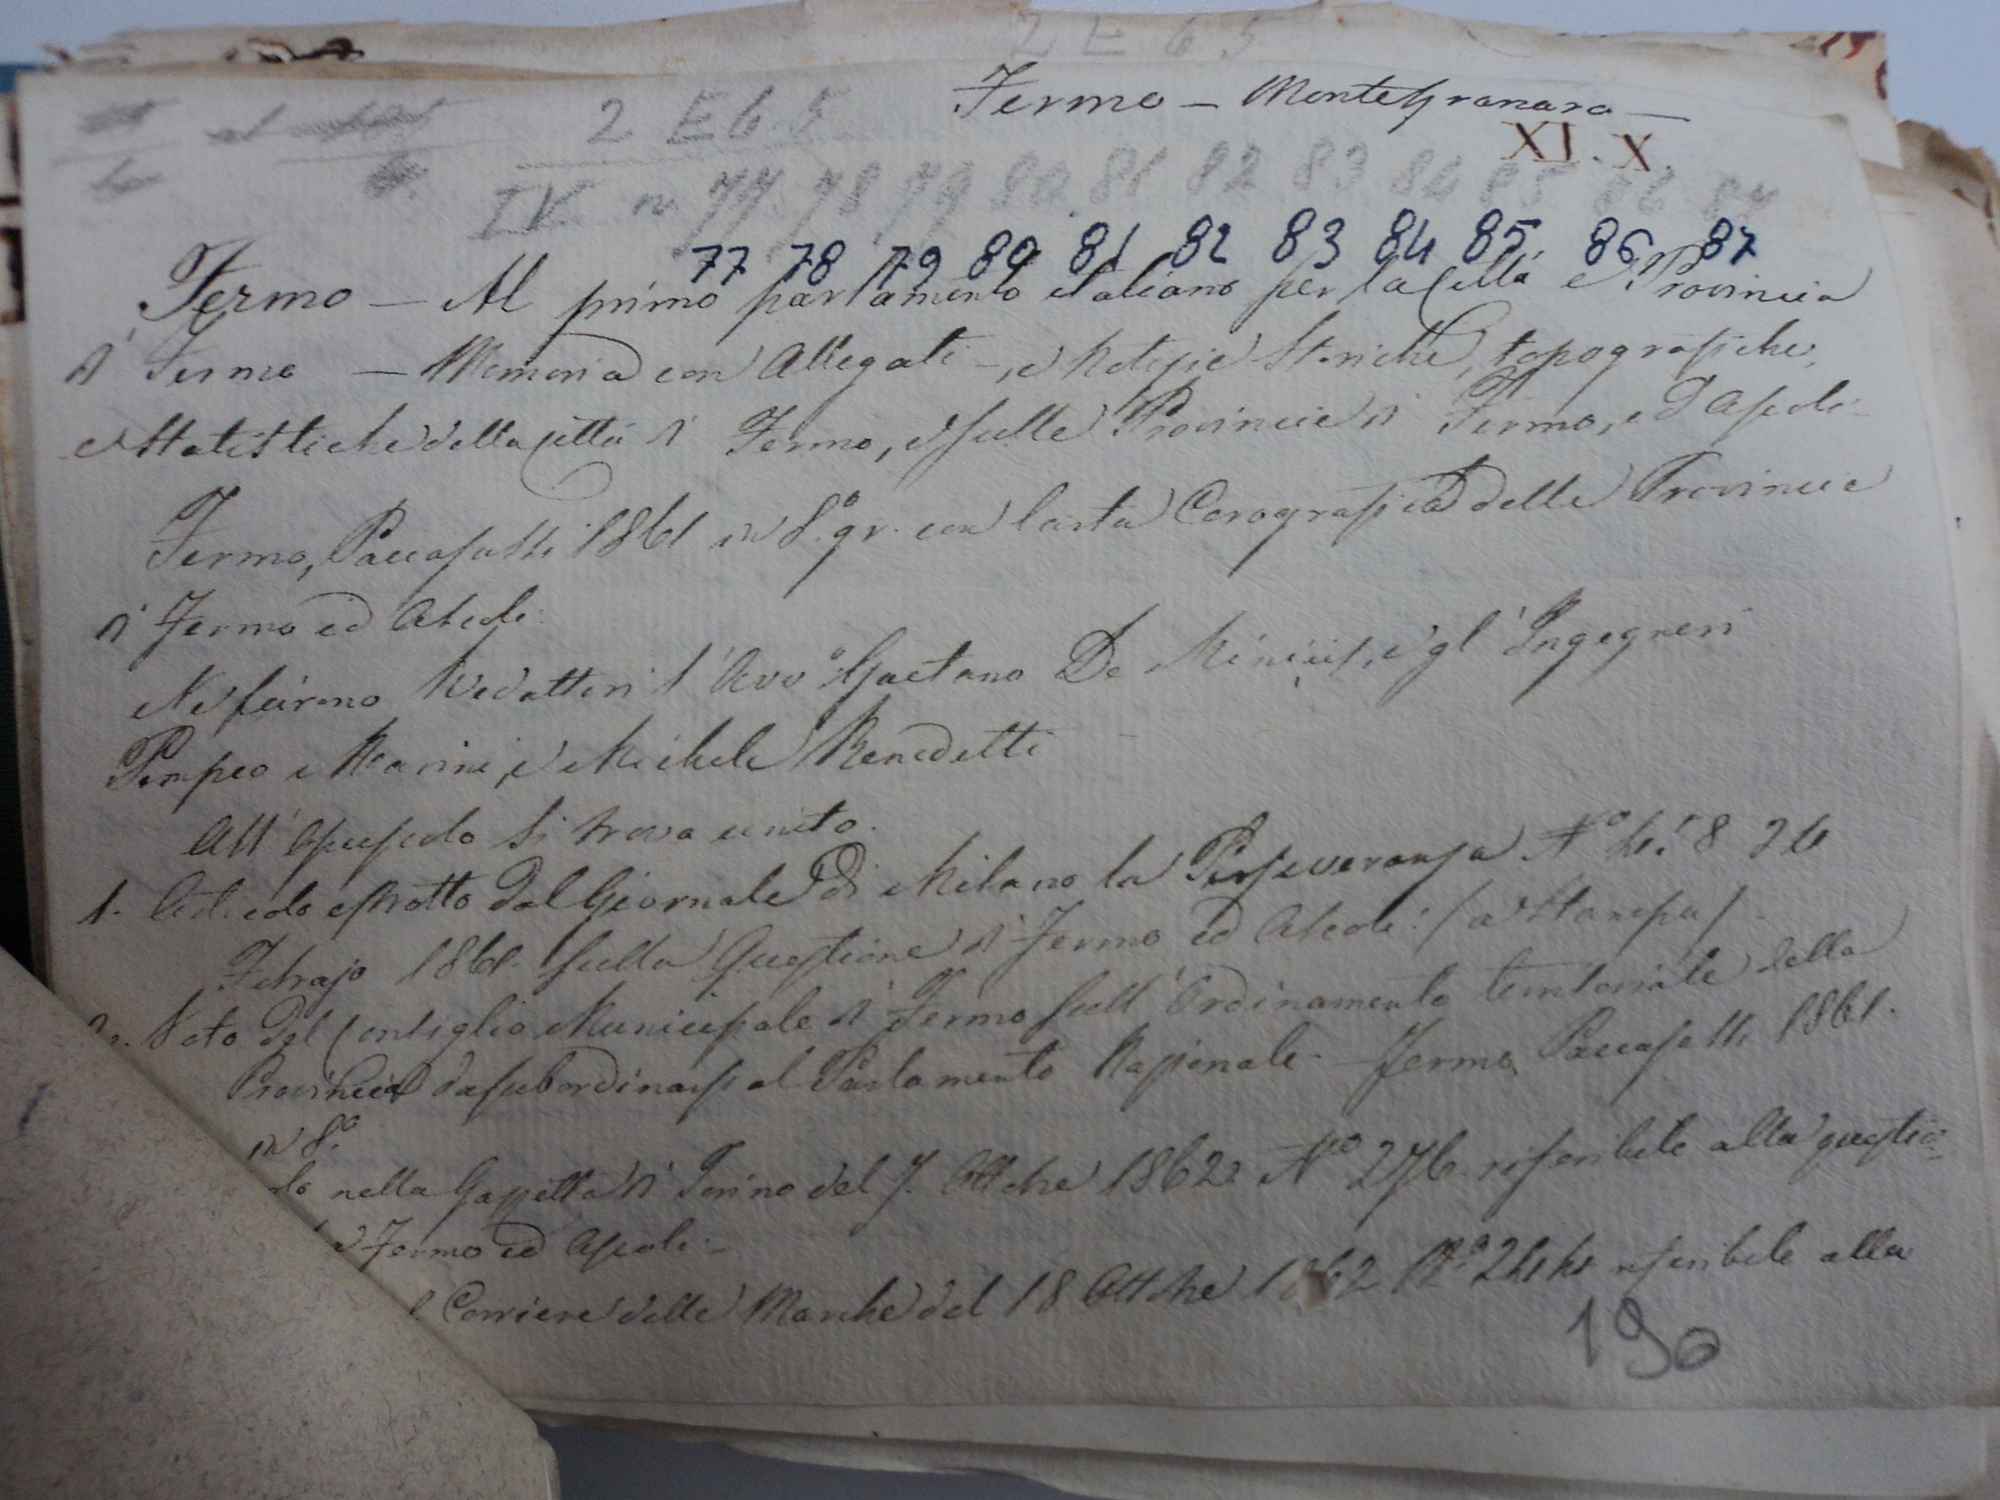 2 E 6 5
Fermo – MonteGranaro –
2 E 6. 5
XI. X.
IV n. 77 78 79 80 81 82 83 84 85 86 87
77 78 79 80 81 82 83 84 85 86 87
Fermo – Al primo parlamento italiano per la Città e Provincia
di Fermo – Memoria con Allegati –, e Notizie Storiche, topografiche,
e Statistiche della Città di Fermo, e sulle Provincie di Fermo, e d'Ascoli –
Fermo, Paccasassi 1861 in 8.º gr. con Carta Corografica delle Provincie
di Fermo ed Ascoli.
Ne furono Redattori l'Avvº Gaetano De Minicis, e gl'Ingegneri
Pompeo Marini, e Michele Benedetti –
All'Opuscolo si trova unito.
1. Articolo estratto dal Giornale di Milano la Perseveranza Nº 458 26
Febrajo 1861. sulla Questione di Fermo ed Ascoli. (a Stampa) –
2. Voto del Consiglio Municipale di Fermo sull'Ordinamento territoriale della
Provincia da subordinarsi al Parlamento Nazionale – Fermo, Paccasassi 1861.
in 8.º
nella Gazzetta di Torino del 7. Ottbre 1862 Nº 276 riferibile alla questio-
Fermo ed Ascoli –
Corriere delle Marche del 18 Ottbre 1862 Nº 244 riferibile alla
190